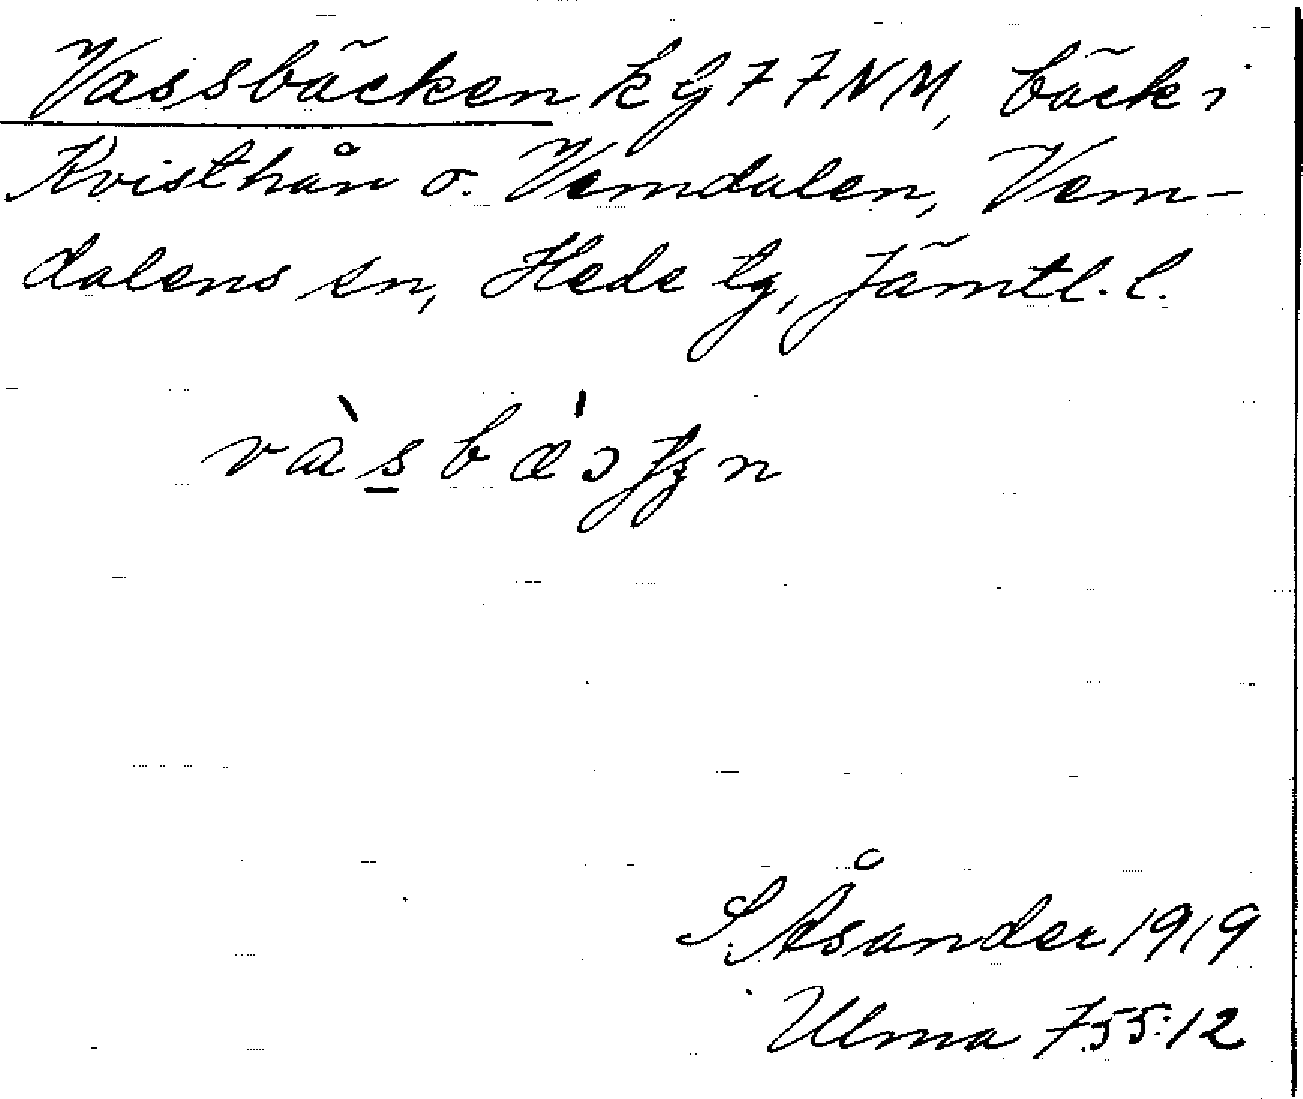 Vassbäcken kg 77NM, bäck i
Kvisthån o. Vemdalen, Vem-
dalens sn, Hede tg, Jämtl. l.
S. Åsander 1919
Ulma 755:12